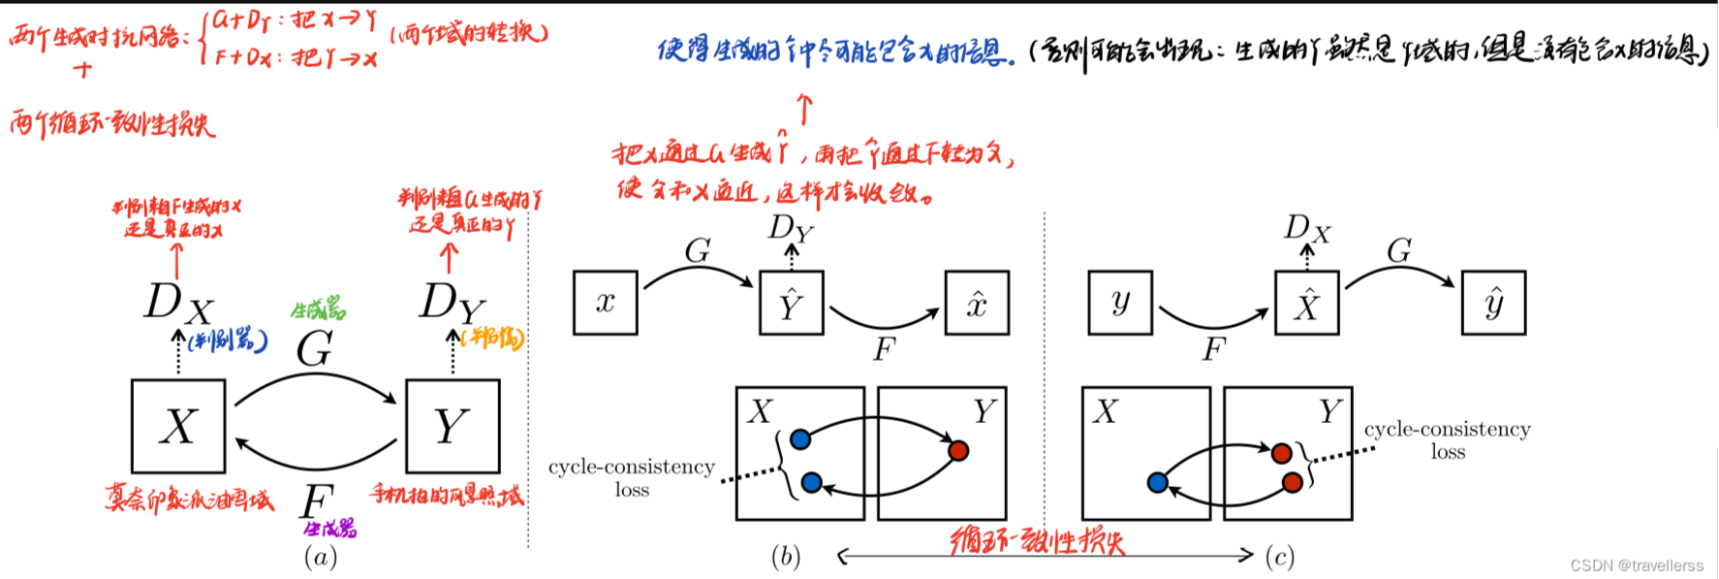 两个生成对抗网络:
G+Dy:把X→Y
F+Dx:把Y→X
(两个域的转换)
+
两个循环一致性损失
使得生成的Ŷ中尽可能包含x的信息。(否则可能会出现:生成的Y虽然是Y域的,但是没有包含X的信息)
把x通过G生成Ŷ,再把Ŷ通过F转为x̂,
使x̂和X逼近,这样才会收敛。
判别来自F生成的X
还是真正的X
判别来自G生成的Y
还是真正的Y
D_X
(判别器)
D_Y
(判别器)
生成器
G
X
Y
F
生成器
莫奈印象派油画域
手机拍的风景照域
(a)
x
G
D_Y
Ŷ
F
x̂
X
Y
cycle-consistency
loss
(b)
y
F
D_X
X̂
G
ŷ
X
Y
cycle-consistency
loss
(c)
循环一致性损失
CSDN @travellerss